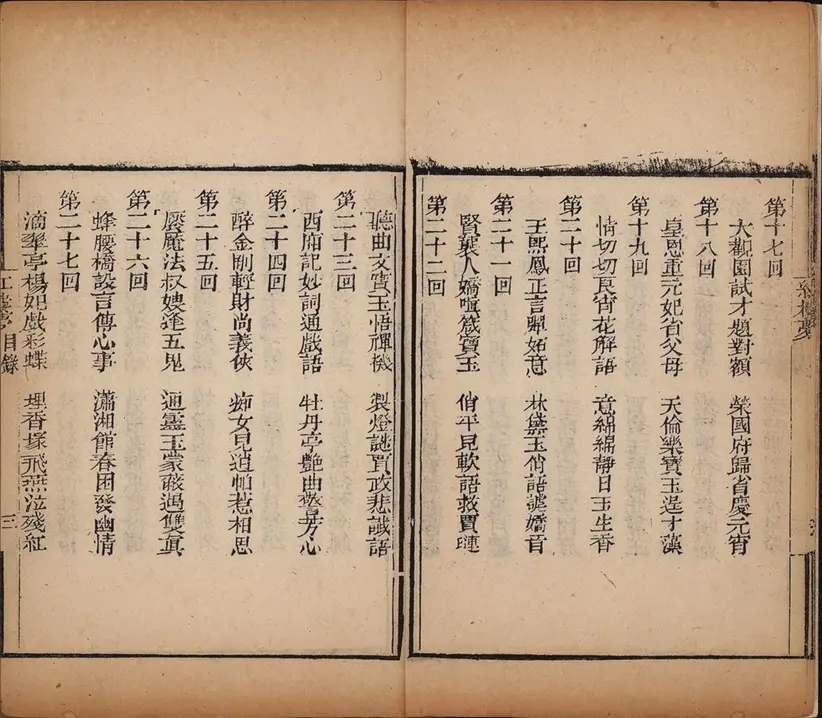 紅樓夢
第十七回
大觀園試才題對額 榮國府歸省慶元宵
第十八回
皇恩重元妃省父母 天倫樂寶玉逞才藻
第十九回
情切切良宵花解語 意綿綿靜日玉生香
第二十回
王熙鳳正言彈妬意 林黛玉俏語謔嬌音
第二十一回
賢襲人嬌嗔箴寶玉 俏平兒軟語救賈璉
第二十二回
聽曲文寶玉悟禪機 製燈謎賈政悲讖語
第二十三回
西廂記妙詞通戲語 牡丹亭艷曲警芳心
第二十四回
醉金剛輕財尚義俠 痴女兒遺帕惹相思
第二十五回
魘魔法叔嫂逢五鬼 通靈玉蒙蔽遇雙眞
第二十六回
蜂腰橋設言傳心事 瀟湘館春困發幽情
第二十七回
滴翠亭楊妃戲彩蝶 埋香塚飛燕泣殘紅
紅樓夢 目錄 三